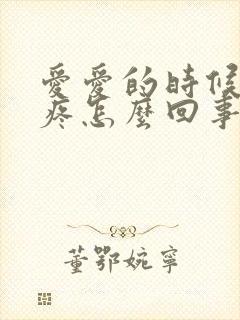 愛愛的時候
疼怎麼回事
董鄂婉寧